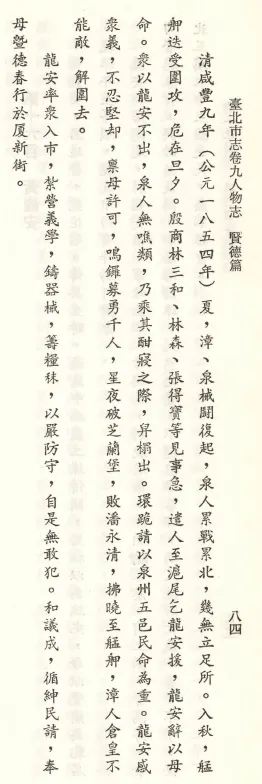 臺北市志卷九人物志　賢德篇
八四
清咸豐九年（公元一八五四年）夏，漳、泉械鬭復起，泉人累戰累北，幾無立足所。入秋，艋
舺迭受圍攻，危在旦夕。殷商林三和、林森、張得寶等見事急，遣人至滬尾乞龍安援，龍安辭以母
命。衆以龍安不出，泉人無噍類，乃乘其酣寢之際，舁榻出。環跪請以泉州五邑民命為重。龍安感
衆義，不忍堅却，稟母許可，鳴鑼募勇千人，星夜破芝蘭堡，敗潘永清，拂曉至艋舺，漳人倉皇不
能敵，解圍去。
龍安率衆入市，紮營義學，鑄器械，籌糧秣，以嚴防守，自是無敢犯。和議成，循紳民請，奉
母暨德春行於厦新街。